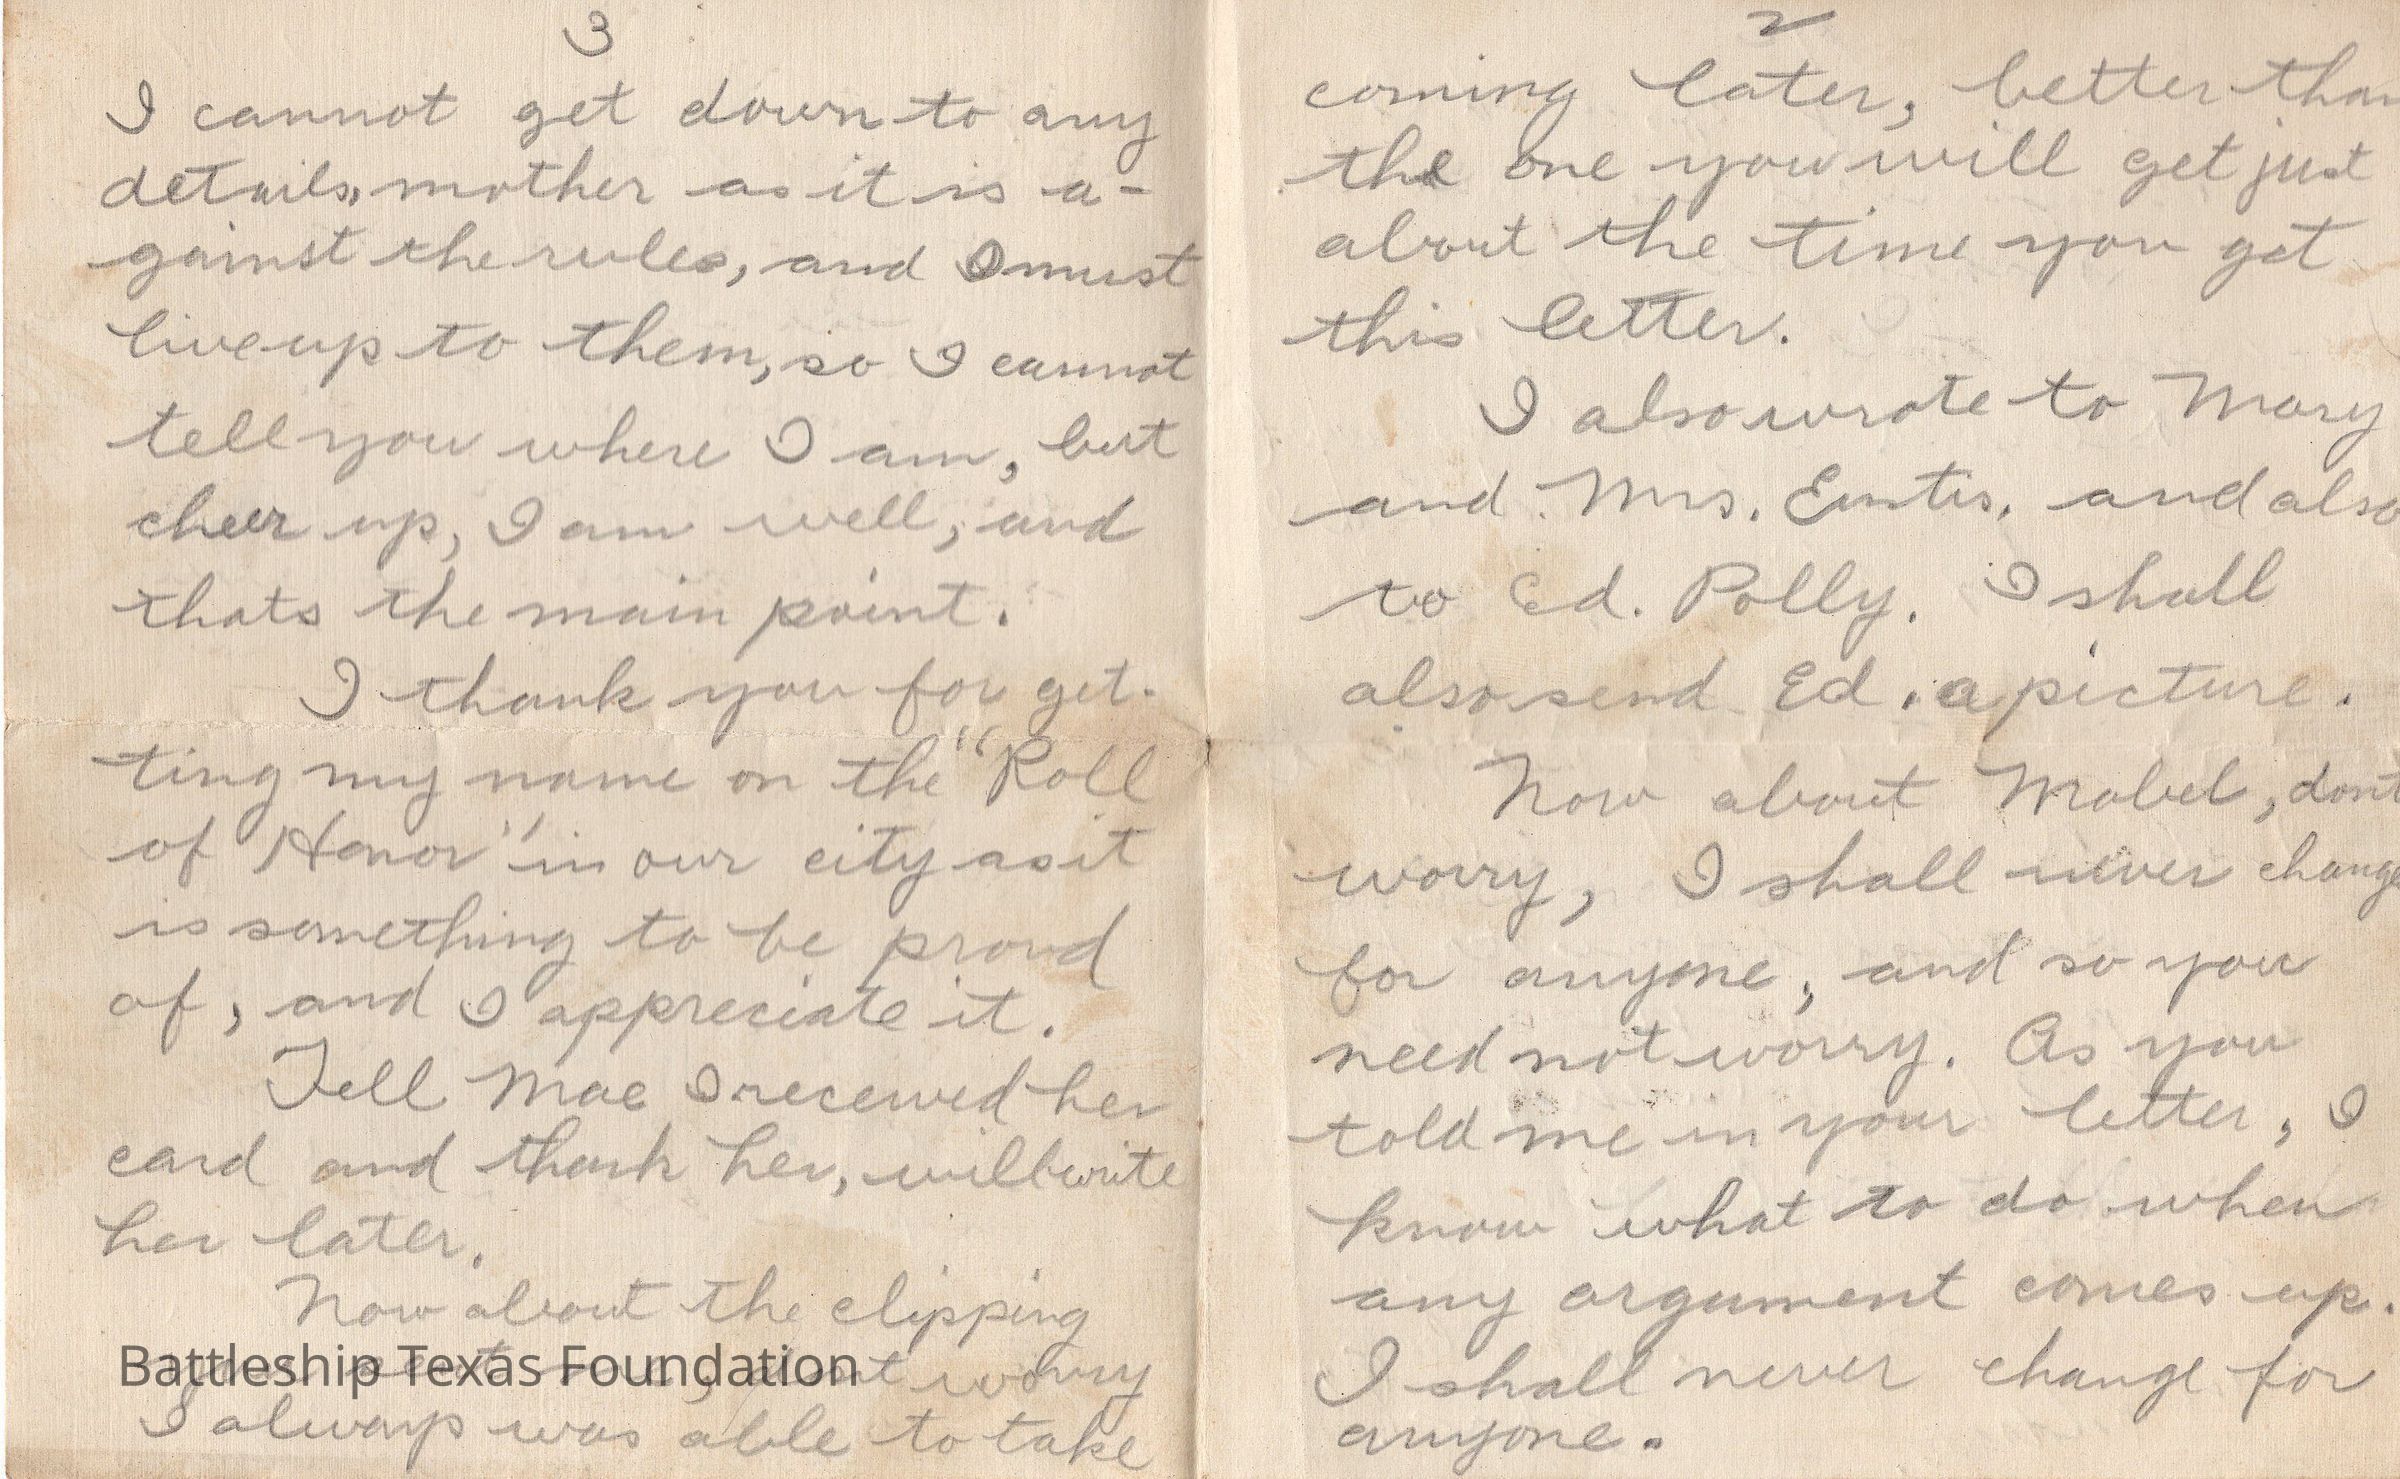 2
coming later, better than
the one you will get just
about the time you get
this letter.
I also wrote to Mary
and Mrs. Euntis. and also
to Ed. Polly. I shall
also send Ed. a picture.
Now about Mabel, dont
worry, I shall never change
for anyone, and so you
need not worry. As you
told me in your letter, I
know what to do when
any argument comes up.
I shall never change for
anyone.
3
I cannot get down to any
details, mother as it is a-
gainst the rules, and I must
live up to them, so I cannot
tell you where I am, but
cheer up, I am well, and
thats the main point.
I thank you for get-
ting my name on the "Roll
of Honor" in our city as it
is something to be proud
of, and I appreciate it.
Tell Mae I received her
card and thank her, will write
her later.
Now about the clipping
you sent me, dont worry
I always was able to take
Battleship Texas Foundation